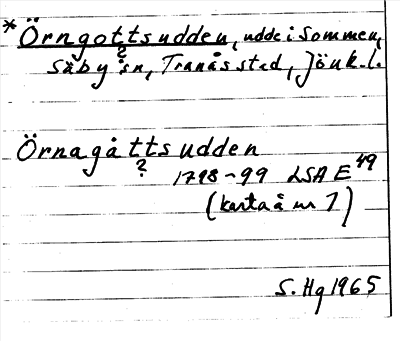 * Örngottsudden, udde i Sommen,
?
Säby sn, Tranås stad, Jönk.l.
Örnagåttsudden
?
1798-99 LSA E 49
(karta å nr 7)
S. Hg 1965